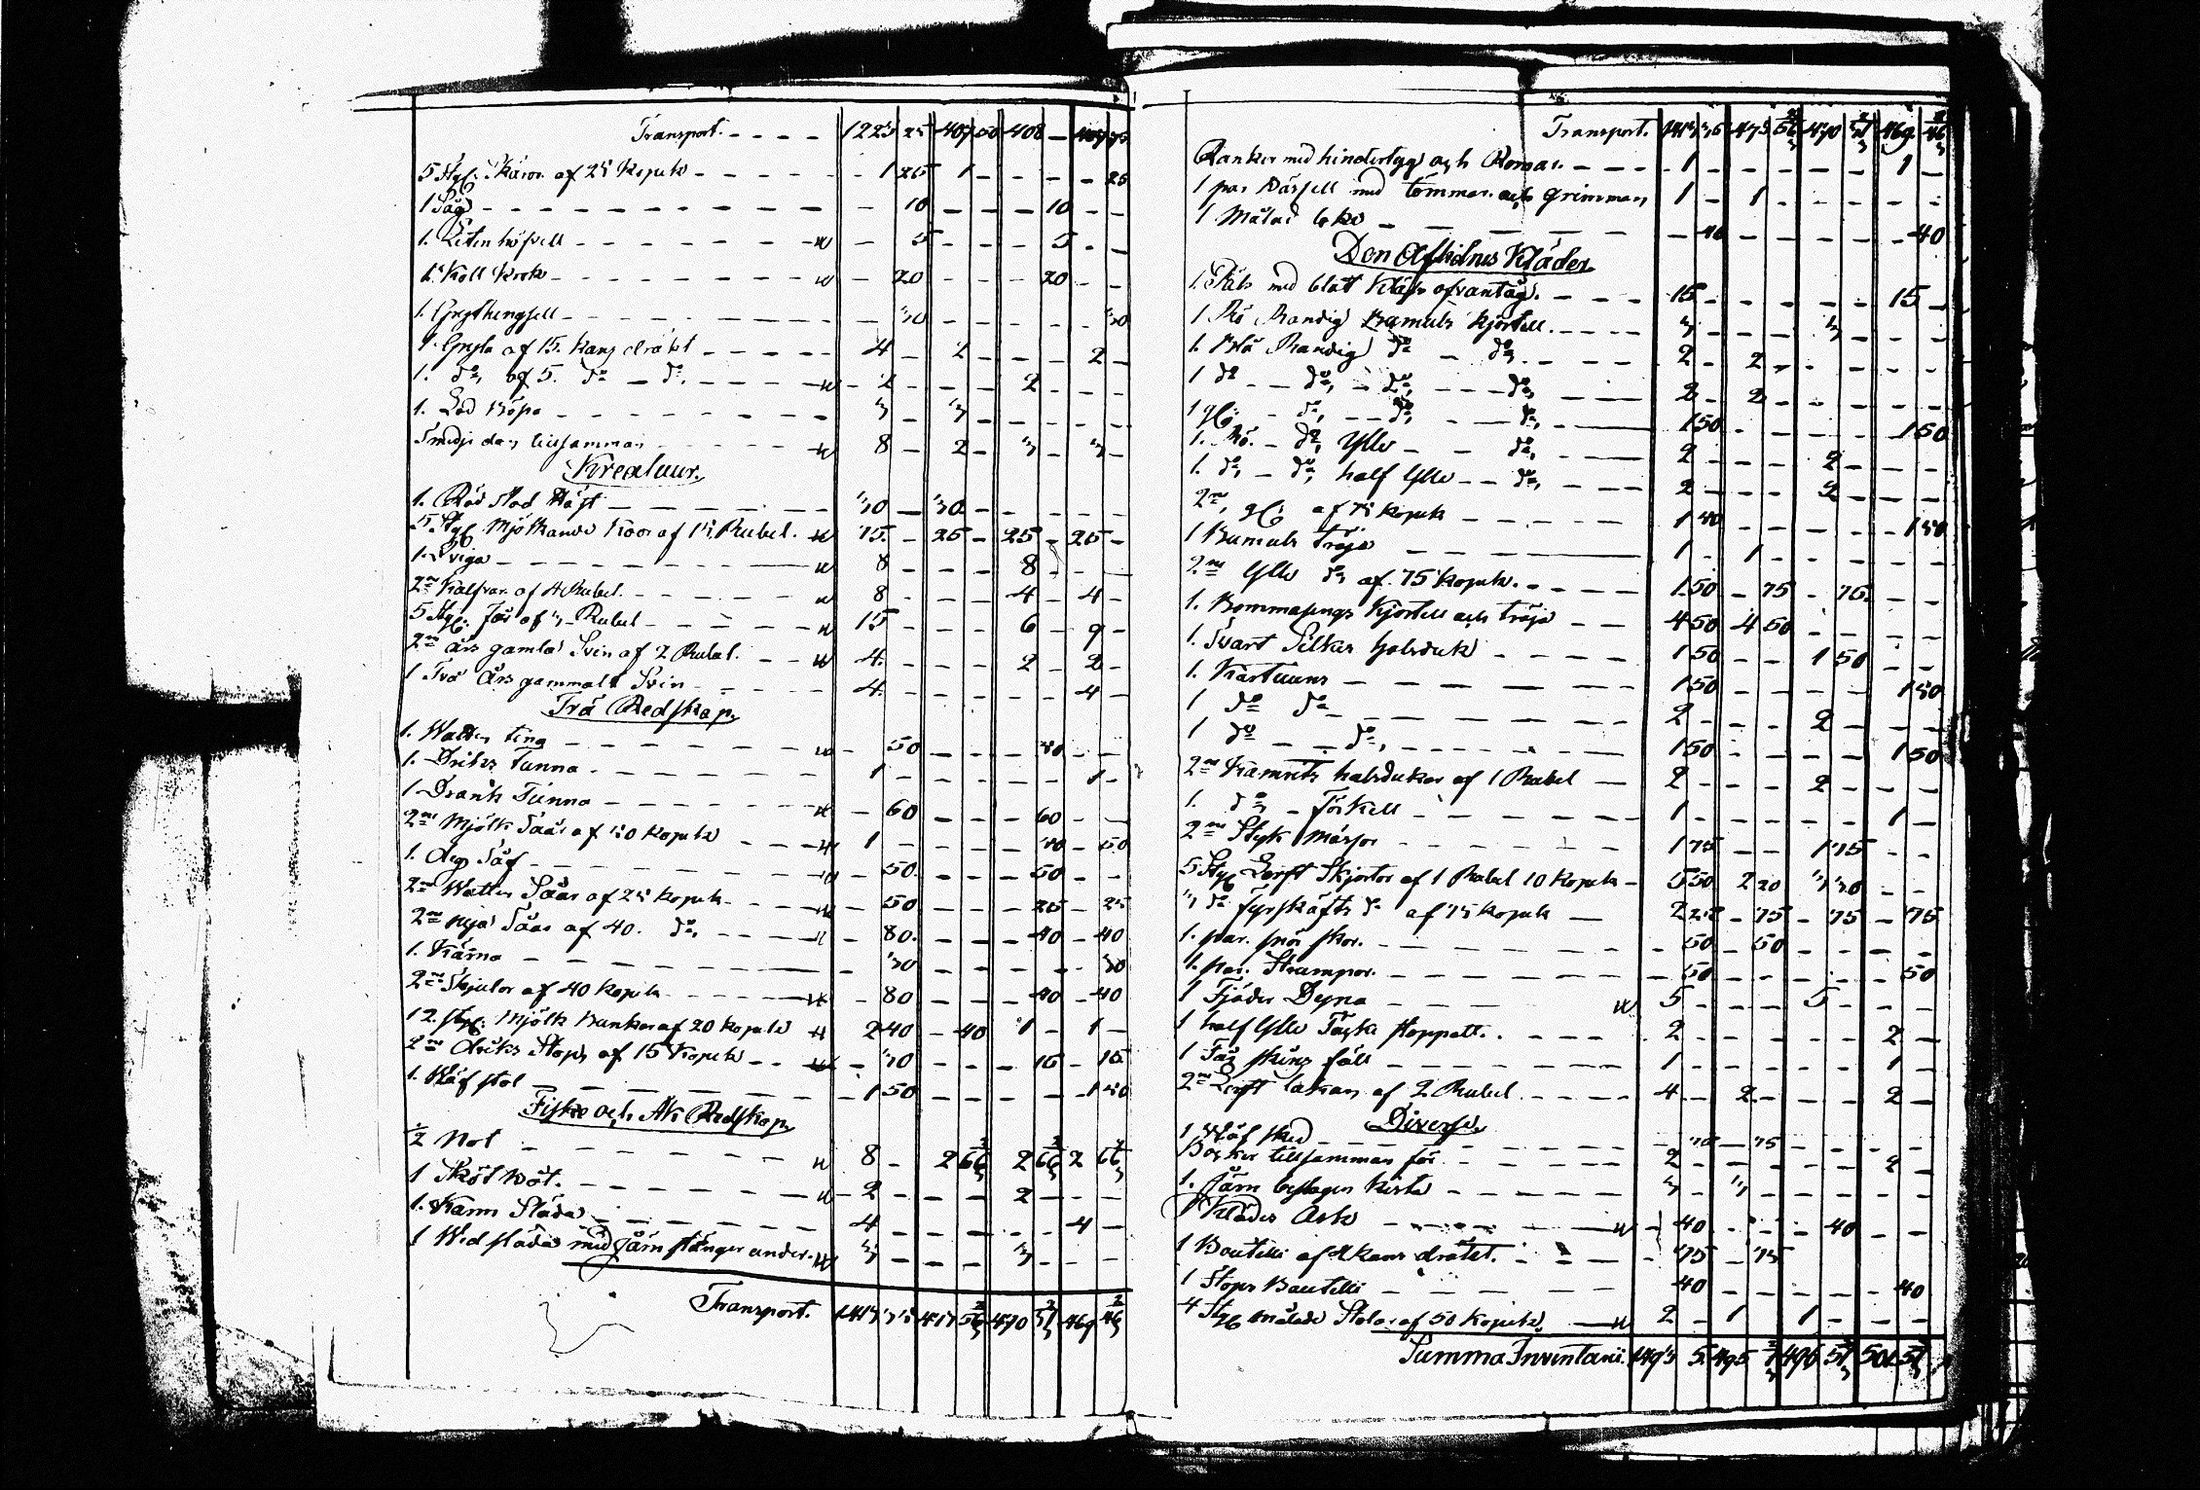 Transport. 1223 25 407 50 408 — 407 75
5 Styc. Skäror af 25 Kopek 1 25 1 — — — — 25
1 Såg — 10 — — — 10 — —
1. Liten höfvell — 5 — — — 5 — —
1. Koll Krok — 20 — — — 20 — —
1. Grythengsell — 30 — — — — — 30
1. Gryta af 15. Kans dräkt 4 — 2 — — — 2 —
1. do af 5. do — do 2 — — — 2 — — —
1. Lod Bössa 3 — 3 — — — — —
Smidjedon tillsamman 8 — 2 — 3 — 3 —
Kreatuur.
1. Röd Stod Häst 30 — 30 — — — — —
5 Styc. Mjölkande Koor af 15 Rubel. 75 — 25 — 25 — 25 —
1. Qviga 8 — — — 8 — — —
2ne Kalfvar af 4 Rubel. 8 — — — 4 — 4 —
5 Styc. Får af 3 Rubel 15 — — — 6 — 9 —
2ne års gamla Svin af 2 Rubel. 4 — — — 2 — 2 —
1 Två Års gammalt Svin 4 — — — — — 4 —
Trä Redskap.
1. Watten tina — 50 — — — 50 — —
1. Dricks Tunna 1 — — — — — 1 —
1 Drank Tunna — 60 — — — 60 — —
2ne Mjölk Såår af 50 Kopek 1 — — — — 50 — 50
1. Deg Såg — 50 — — — 50 — —
2ne Watten Såår af 25 Kopek — 50 — — — 25 — 25
2ne nya Såar af 40. do — 80 — — — 40 — 40
1. Kärna — 30 — — — — — 30
2ne Skjulor af 40 Kopek — 80 — — — 40 — 40
12. styc. Mjölk Bunkar af 20 Kopek 2 40 — 40 1 — 1 —
2ne dricks Stop af 15 Kopek — 30 — — — 15 — 15
1. Wäf stol 1 50 — — — — 1 50
Fiske och Åk Redskap.
½ Not 8 — 2 66 2/3 2 66 2/3 2 66 2/3
1 Sköt Nöt. 2 — — — 2 — — —
1. Kann Släda 4 — — — — — 4 —
1 Wed släda med Järn stänger under. 3 — — — 3 — — —
Transport.
Transport.
Ranker med hindertyg och Remar 1 — — — — — 1 —
1 par Wässell med tömmar och Grimman 1 — 1 — — — — —
1 Målad — 40 — — — — — 40
Den Aflidnes Kläder
1. Päls med blåt Kläds ofvantåg. 15 — — — — — 15 —
1 Rö Randig Bamuls Kjortell. 3 — — — 3 — — —
1. Blå Randig do — do 2 — 2 — — — — —
1 do — do — do — do 2 — 2 — — — — —
1 gl: — do — do — do 1 50 — — — — 1 50
1. Rö. — do Ylle — do 2 — — — 2 — — —
1. do — do half Ylle — do 2 — — — 2 — — —
2ne gl: af 75 Kopek 1 50 — — — — 1 50
1 Bumuls tröja 1 — 1 — — — — —
2ne Ylle do af 75 Kopek. 1 50 — 75 — 75 — —
1. Bommasings Kjortell och tröja 4 50 4 50 — — — —
1. Svart Silkes halsduk 1 50 — — 1 50 — —
1. Kartuuns 1 50 — — — — 1 50
1 do do 2 — — — 2 — — —
1 do — do 1 50 — — — — 1 50
2ne Kamriks halsdukar af 1 Rubel 2 — — — 2 — — —
1. do — Förkell 1 — — — — — 1 —
2ne Styk Mässor 1 75 — — 1 75 — —
5 Styc Lerft Skjortor af 1 Rubel 10 Kopek 5 50 2 20 3 30 — —
3 do fyrskäfts do af 75 Kopek 2 25 — 75 — 75 — 75
1. par. snör skor. — 50 — 50 — — — —
1. par. Strumpor. — 50 — — — — — 50
1 Fjäder Dyna 5 — — — 5 — — —
1 half Ylle Täcke stoppatt. 2 — — — — — 2 —
1 Får skins fäll 1 — — — — — 1 —
2ne Lerft lakan af 2 Rubel 4 — 2 — — — 2 —
Diverse.
1 Wäf sked — 75 — 75 — — — —
Böcker tillsamman för 2 — — — — — 2 —
1. Järn beslagen Kista 3 — 3 — — — — —
1 Kläder Ask — 40 — — — 40 — —
1 Boutelli af 2 Kans dräkt. — 75 — 75
1 Stops Boutelli — 40 — — — — — 40
4 Styc målade Stolar af 50 Kopek. 2 — 1 — 1 — — —
Summa Inventarii.